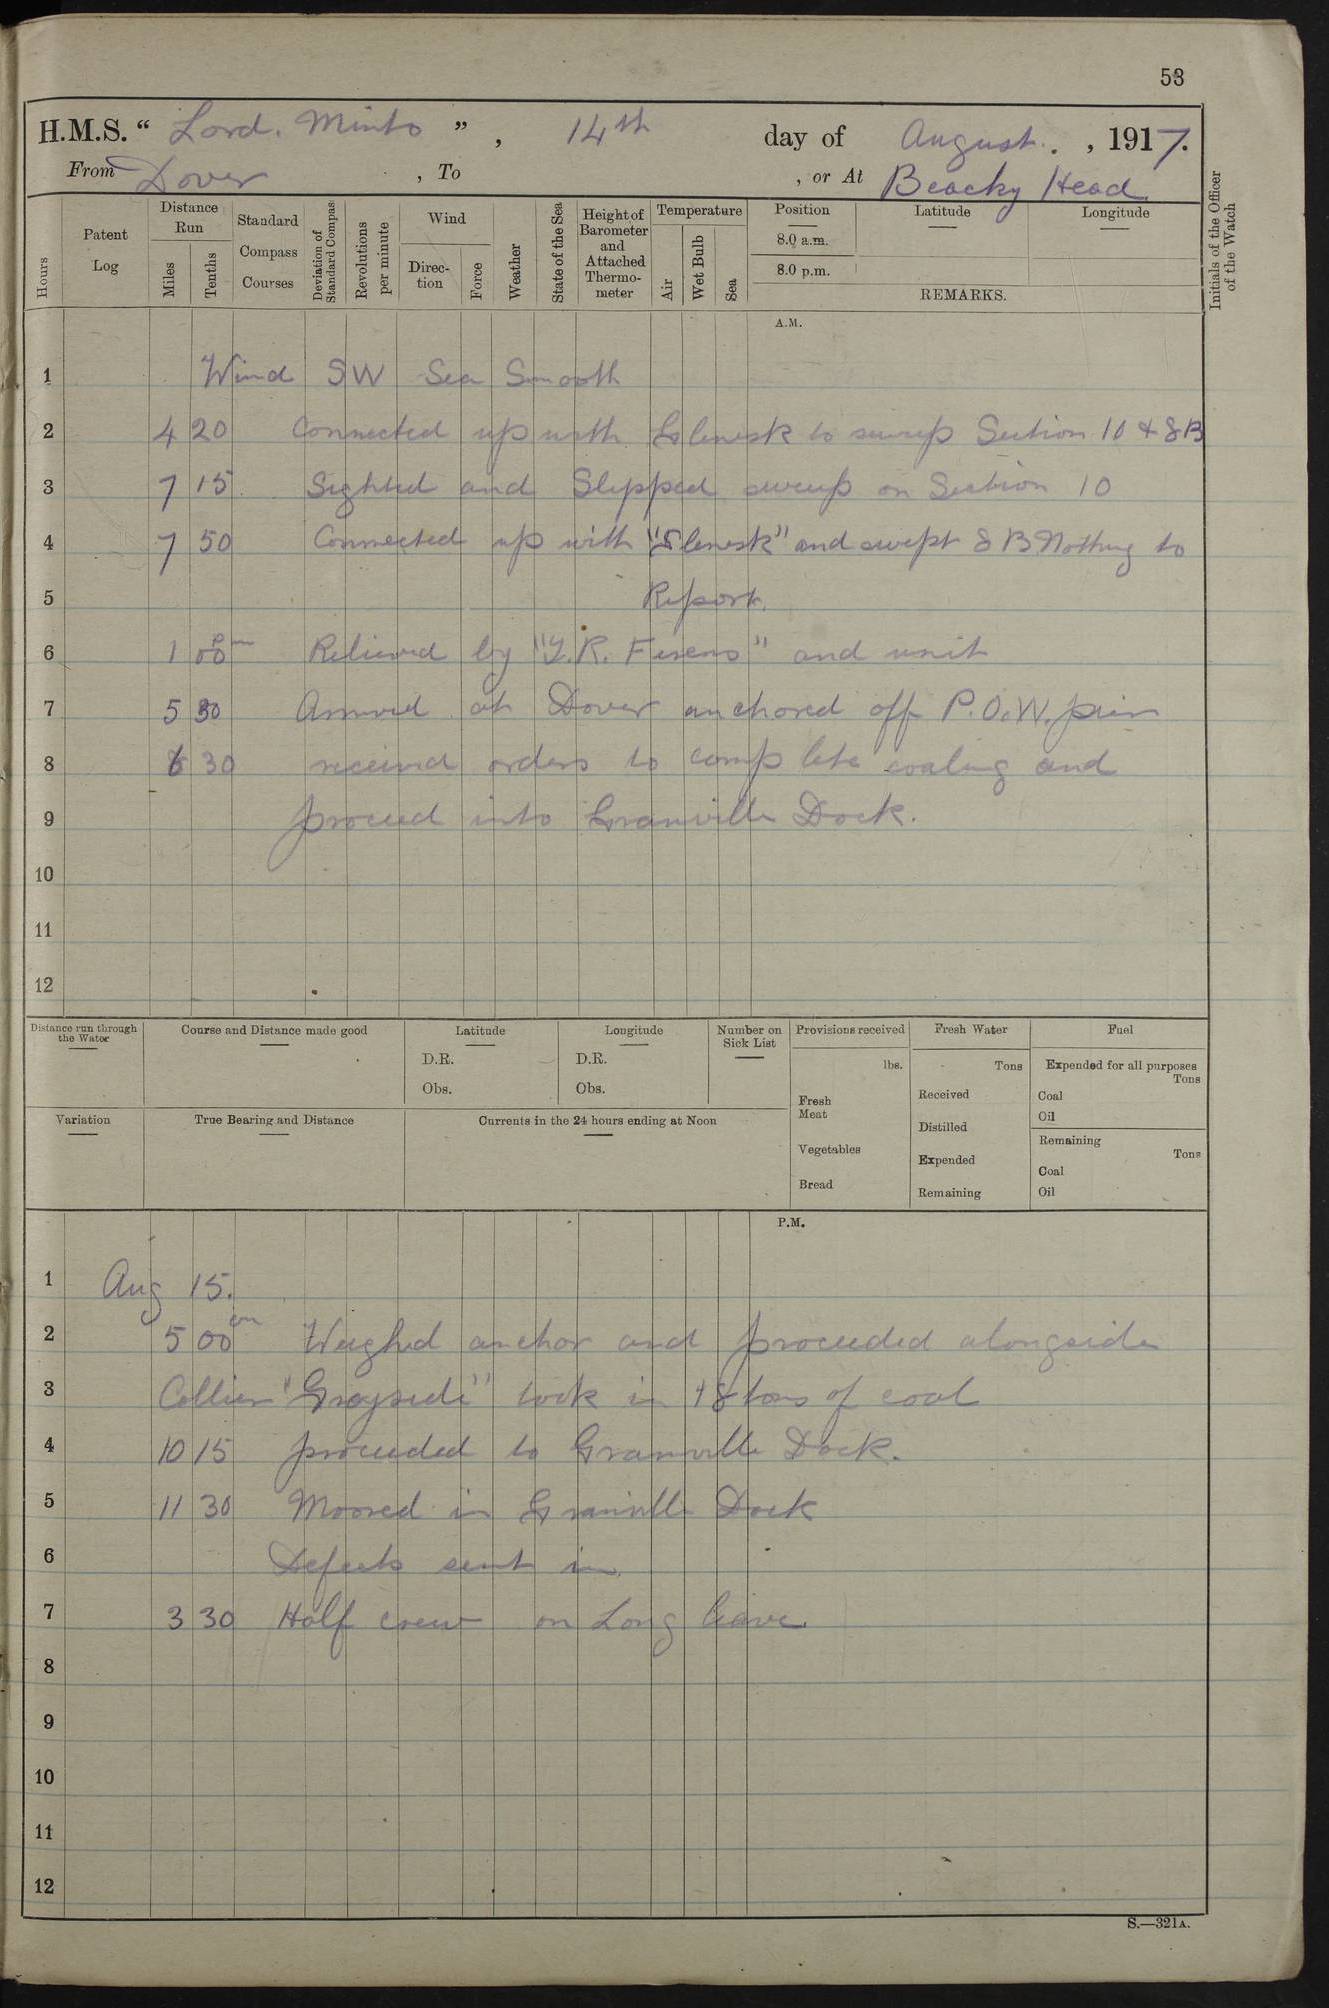 53
H.M.S. “ Lord. Minto ” , 14th day of August. , 1917.
From Dover , To , or At Beachy Head
Hours
Patent Log
Distance Run
Miles
Tenths
Standard Compass Courses
Deviation of Standard Compass
Revolutions per minute
Wind
Direction
Force
Weather
State of the Sea
Height of Barometer and Attached Thermometer
Temperature
Air
Wet Bulb
Sea
Position
8.0 a.m.
8.0 p.m.
Latitude
Longitude
REMARKS.
Initials of the Officer of the Watch
A.M.
1 Wind SW Sea Smooth
2 4 20 Connected up with Glenesk to sweep Section 10 & 8B
3 7 15 Sighted and Slipped sweep on Section 10
4 7 50 Connected up with "Glenesk" and swept 8B Nothing to
5 Report.
6 1 00 pm Relieved by "T.R. Ferens" and unit
7 5 30 Arrived at Dover anchored off P.O.W. pier
8 6 30 received orders to complete coaling and
9 proceed into Granville Dock.
10
11
12
Distance run through the Water
Course and Distance made good
Latitude
D.R.
Obs.
Longitude
D.R.
Obs.
Number on Sick List
Provisions received
lbs.
Fresh Meat
Vegetables
Bread
Fresh Water
Tons
Received
Distilled
Expended
Remaining
Fuel
Expended for all purposes
Tons
Coal
Oil
Remaining
Tons
Coal
Oil
Variation
True Bearing and Distance
Currents in the 24 hours ending at Noon
P.M.
1 Aug 15.
2 5 00 am Weighed anchor and proceeded alongside
3 Collier "Grayside" took in 48 tons of coal
4 10 15 proceeded to Granville Dock.
5 11 30 Moored in Granville Dock
6 Defects sent in.
7 3 30 Half crew on Long leave.
8
9
10
11
12
S.—321A.